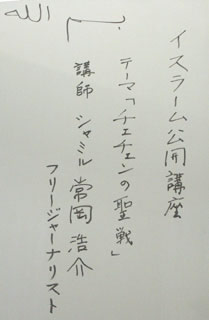 بسم الله
イスラーム公開講座
テーマ「チェチェンの聖戦」
講師 シャミル 常岡浩介
フリージャーナリスト